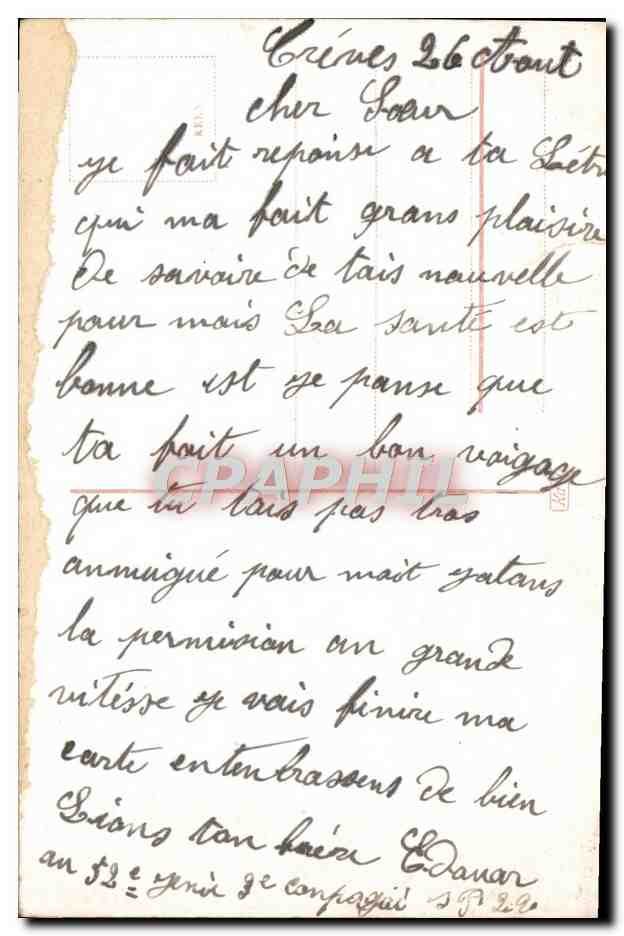 Tréves 26 Aout
cher Sœur
ye fait reponse a ta Létre
qui ma fait grans plaisire
de savoire de tais nouvelle
pour mais La santé est
bonne est ye panse que
ta fait un bon voigage
CPAPHIL
que tu tais pas tros
anmuigué pour mait yatans
la permision an grande
vitésse ye vais finire ma
carte entenbrassens de bien
Lions ton frére Edouar
au 52e yenie 3e conpagie S P 22